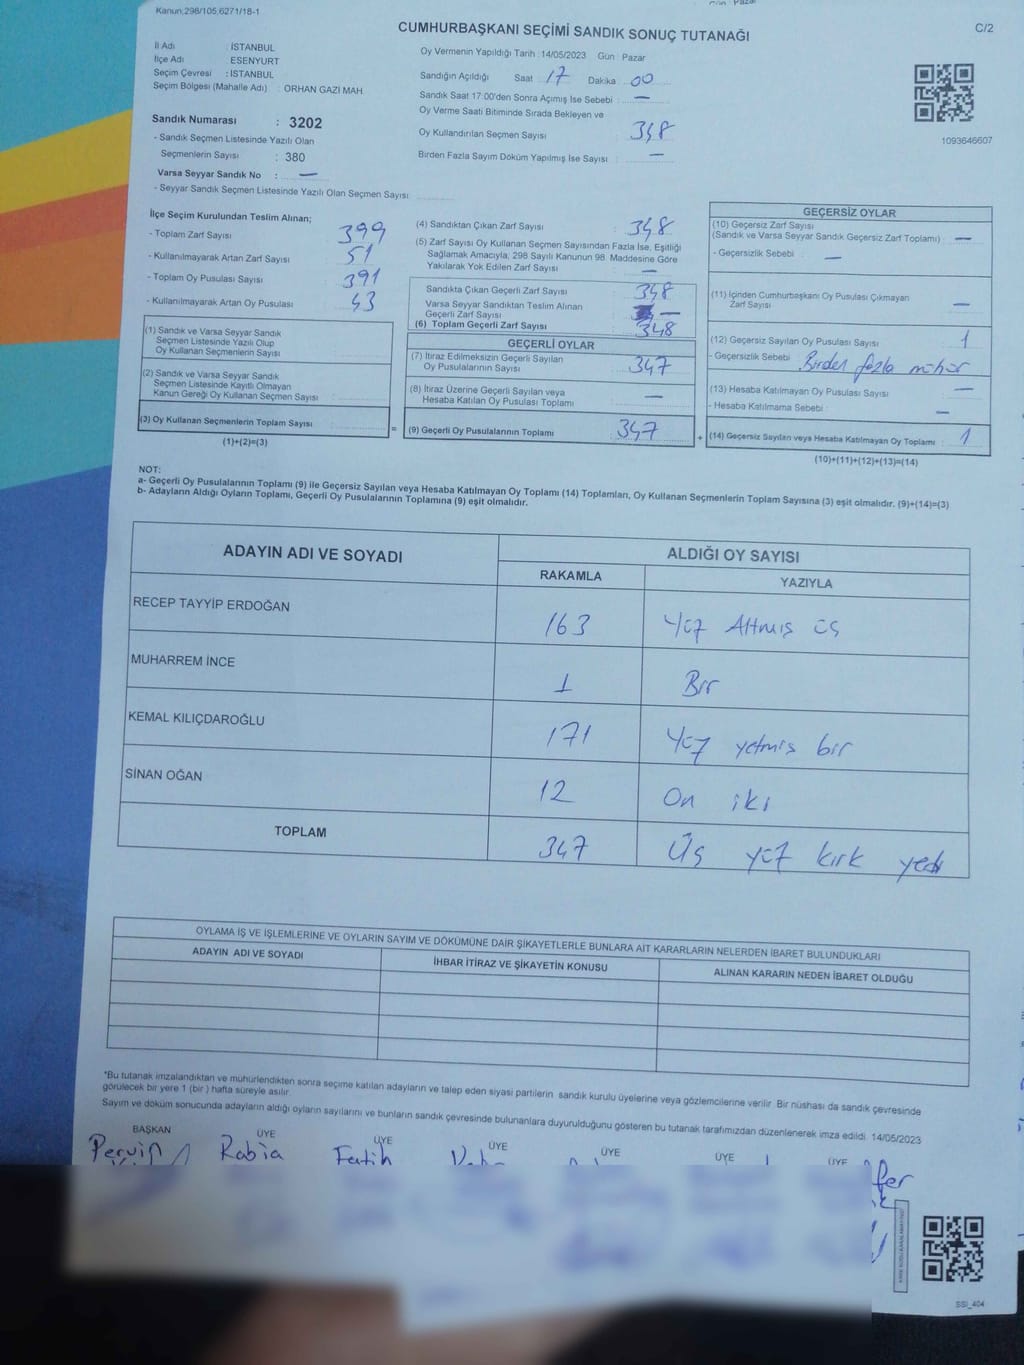 Kanun;298/105,6271/18-1
CUMHURBAŞKANI SEÇİMİ SANDIK SONUÇ TUTANAĞI
C/2
İl Adı : İSTANBUL
İlçe Adı : ESENYURT
Seçim Çevresi : İSTANBUL
Seçim Bölgesi (Mahalle Adı) : ORHAN GAZİ MAH.
Sandık Numarası : 3202
- Sandık Seçmen Listesinde Yazılı Olan
Seçmenlerin Sayısı : 380
Varsa Seyyar Sandık No : —
- Seyyar Sandık Seçmen Listesinde Yazılı Olan Seçmen Sayısı :
Oy Vermenin Yapıldığı Tarih : 14/05/2023 Gün : Pazar
Sandığın Açıldığı Saat : 17 Dakika : 00
Sandık Saat 17:00'den Sonra Açımış İse Sebebi : —
Oy Verme Saati Bitiminde Sırada Bekleyen ve
Oy Kullandırılan Seçmen Sayısı : 348
Birden Fazla Sayım Döküm Yapılmış İse Sayısı : —
1093646607
İlçe Seçim Kurulundan Teslim Alınan;
- Toplam Zarf Sayısı : 399
- Kullanılmayarak Artan Zarf Sayısı : 51
- Toplam Oy Pusulası Sayısı : 391
- Kullanılmayarak Artan Oy Pusulası : 43
(1) Sandık ve Varsa Seyyar Sandık
Seçmen Listesinde Yazılı Olup
Oy Kullanan Seçmenlerin Sayısı :
(2) Sandık ve Varsa Seyyar Sandık
Seçmen Listesinde Kayıtlı Olmayan
Kanun Gereği Oy Kullanan Seçmen Sayısı :
(3) Oy Kullanan Seçmenlerin Toplam Sayısı : =
(1)+(2)=(3)
(4) Sandıktan Çıkan Zarf Sayısı : 348
(5) Zarf Sayısı Oy Kullanan Seçmen Sayısından Fazla İse, Eşitliği
Sağlamak Amacıyla; 298 Sayılı Kanunun 98. Maddesine Göre
Yakılarak Yok Edilen Zarf Sayısı : —
Sandıkta Çıkan Geçerli Zarf Sayısı : 348
Varsa Seyyar Sandıktan Teslim Alınan
Geçerli Zarf Sayısı : —
(6) Toplam Geçerli Zarf Sayısı : 348
GEÇERLİ OYLAR
(7) İtiraz Edilmeksizin Geçerli Sayılan
Oy Pusulalarının Sayısı : 347
(8) İtiraz Üzerine Geçerli Sayılan veya
Hesaba Katılan Oy Pusulası Toplamı : —
(9) Geçerli Oy Pusulalarının Toplamı : 347 +
GEÇERSİZ OYLAR
(10) Geçersiz Zarf Sayısı
(Sandık ve Varsa Seyyar Sandık Geçersiz Zarf Toplamı) : —
- Geçersizlik Sebebi : —
(11) İçinden Cumhurbaşkanı Oy Pusulası Çıkmayan
Zarf Sayısı : —
(12) Geçersiz Sayılan Oy Pusulası Sayısı : 1
- Geçersizlik Sebebi : Birden fazla mühür
(13) Hesaba Katılmayan Oy Pusulası Sayısı : —
- Hesaba Katılmama Sebebi : —
(14) Geçersiz Sayılan veya Hesaba Katılmayan Oy Toplamı : 1
(10)+(11)+(12)+(13)=(14)
NOT:
a- Geçerli Oy Pusulalarının Toplamı (9) ile Geçersiz Sayılan veya Hesaba Katılmayan Oy Toplamı (14) Toplamları, Oy Kullanan Seçmenlerin Toplam Sayısına (3) eşit olmalıdır. (9)+(14)=(3)
b- Adayların Aldığı Oyların Toplamı, Geçerli Oy Pusulalarının Toplamına (9) eşit olmalıdır.
ADAYIN ADI VE SOYADI
ALDIĞI OY SAYISI
RAKAMLA YAZIYLA
RECEP TAYYİP ERDOĞAN 163 Yüz Altmış üç
MUHARREM İNCE 1 Bir
KEMAL KILIÇDAROĞLU 171 Yüz yetmiş bir
SİNAN OĞAN 12 On iki
TOPLAM 347 Üç yüz kırk yedi
OYLAMA İŞ VE İŞLEMLERİNE VE OYLARIN SAYIM VE DÖKÜMÜNE DAİR ŞİKAYETLERLE BUNLARA AİT KARARLARIN NELERDEN İBARET BULUNDUKLARI
ADAYIN ADI VE SOYADI İHBAR İTİRAZ VE ŞİKAYETİN KONUSU ALINAN KARARIN NEDEN İBARET OLDUĞU
*Bu tutanak imzalandıktan ve mühürlendikten sonra seçime katılan adayların ve talep eden siyasi partilerin sandık kurulu üyelerine veya gözlemcilerine verilir. Bir nüshası da sandık çevresinde
görülecek bir yere 1 (bir ) hafta süreyle asılır.
Sayım ve döküm sonucunda adayların aldığı oyların sayılarını ve bunların sandık çevresinde bulunanlara duyurulduğunu gösteren bu tutanak tarafımızdan düzenlenerek imza edildi. 14/05/2023
BAŞKAN ÜYE ÜYE ÜYE ÜYE ÜYE ÜYE
Pervin Rabia Fatih
SSI_404